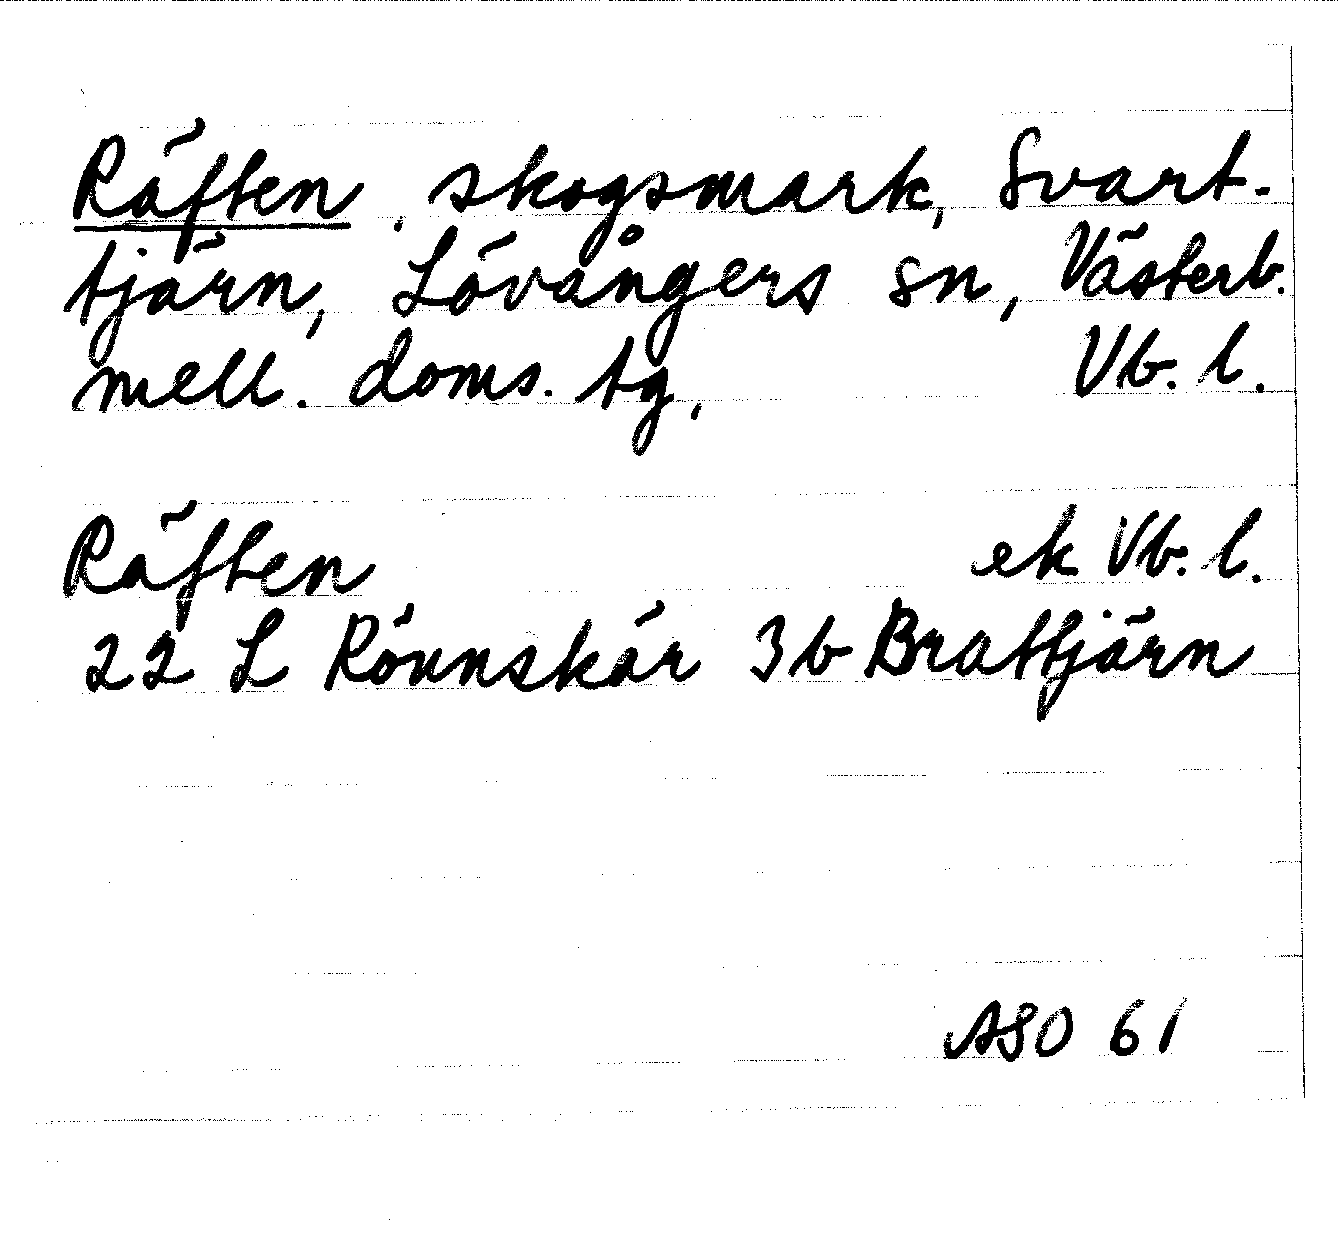 Räften, skogsmark, Svart-
tjärn, Lövångers sn, Västerb.
mell. doms. tg, Vb. l.
Räften ek Vb. l.
22 L Rönnskär 3b Brattjärn
ASO 61